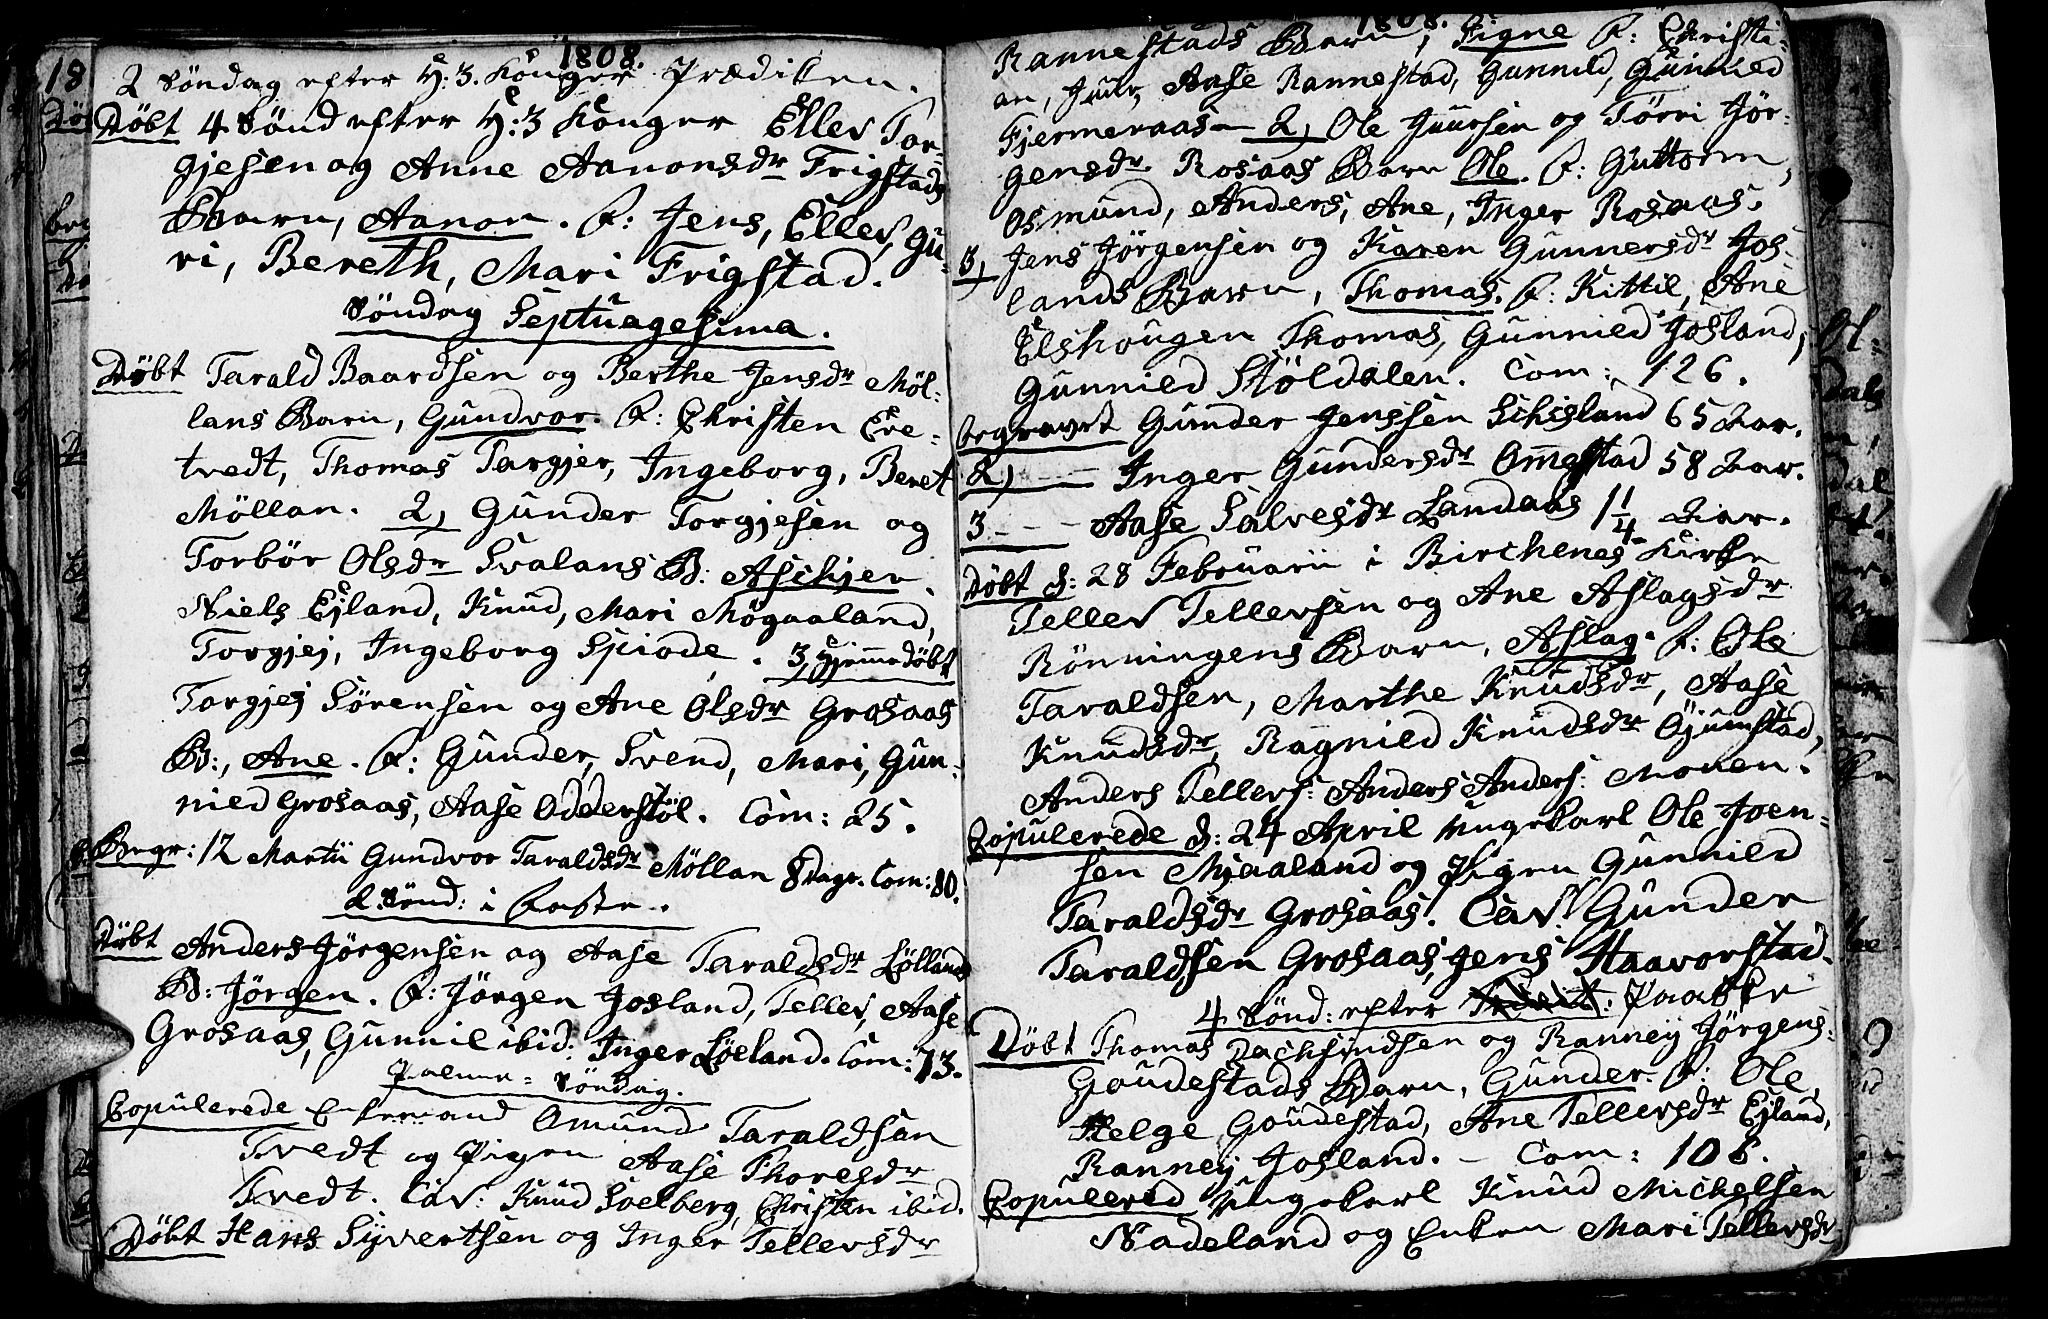 1808.
2 Söndag efter H: 3. Konger Prædiken.
Döbt 4 Sönd efter H: 3 Konger Ellev Tor-
gjesen og Anne Aanonsdr Frigstads
Barn, Aanon. F: Jens, Ellev, Gu-
ri, Bereth, Mari Frigstad.
Söndag Septuagesima.
Döbt Tarald Baardsen og Berthe Jensdr Möl-
lans Barn, Gundvor. F: Christen Ere-
tvedt, Thomas Targjer, Ingeborg, Beret
Möllan. 2, Gunder Torgjesen og
Torbör Olsdr Svalans B: Aschjer.
Niels Ejland, Knud, Mari Mögaaland,
Torgjej, Ingeborg Spiode. 3, Hjemedöbt
Torgjej Sörensen og Ane Olsdr Grosaas
B:, Ane. F: Gunder, Svend, Mari, Gun-
nied Grosaas, Aase Odderstöl. Com: 25.
Begr: 12 Martii Gundvor Taraldsdr Möllan 8 Dage. Com: 80.
2. Sönd: i Faste.
Döbt Anders Jörgensen og Aase Taraldsdr Löllands
B: Jörgen. F: Jörgen Josland, Tellev, Aase
Grosaas, Gunnil ibid: Inger Löeland. Com: 73.
Palme-Söndag.
Copulerede Enkemand Omund Taraldsen
Tvedt og Pigen Aase Thoresdr
Tvedt. Cav: Knud Soelberg, Christen ibid.
Döbt Hans Syvertsen og Inger Tellevsdr
1808.
Rannestads Barn, Signe F: Christi-
an, Juul, Aase Rannestad, Gunnild, Gunnied
Fjermeraas - 2, Ole Juursen og Törri Jör-
gensdr Rosaas Barn Ole. F: Guttorm,
Osmund, Anders, Ane, Inger Rosaas.
3, Jens Jörgensen og Karen Gunnersdr Jos-
lands Barn, Thomas. F: Kittil, Ane
Elshougen Thomas, Gunnied Josland,
Gunnied Stöldalen. Com: 126.
begravet Gunder Jenssen Schisland 65 Aar.
2, - - Inger Gundersdr Omestad 58 Aar.
3 - - Aase Salvesdr Landaas 1 1/4 Aar.
Döbt d: 28 Februarii i Birchenes Kirke
Tellev Tellevsen og Ane Aslagsdr
Rönningens Barn, Aslag. F: Ole
Taraldsen, Marthe Knudsdr, Aase
Knudsdr, Ragnild Knudsdr Öjumstad,
Anders Tellevs: Anders Anders: Mouen.
Copulerede d: 24 April Ungekarl Ole Joen-
sen Mjaaland og Pigen Gunnild
Taraldsdr Grosaas. Cav: Gunder
Taraldsen Grosaas, Jens Haavorstad.
4 Sönd: efter Paaske
Döbt Thomas Dachfindsen og Ranney Jörgens:
Goudestads Barn, Gunder. F: Ole,
Helge Goudestad, Ane Tellevsdr Ejland,
Ranney Josland. - Com: 108.
Copulered Ungekarl Knud Michelsen
Nadeland og Enken Mari Tellevsdr